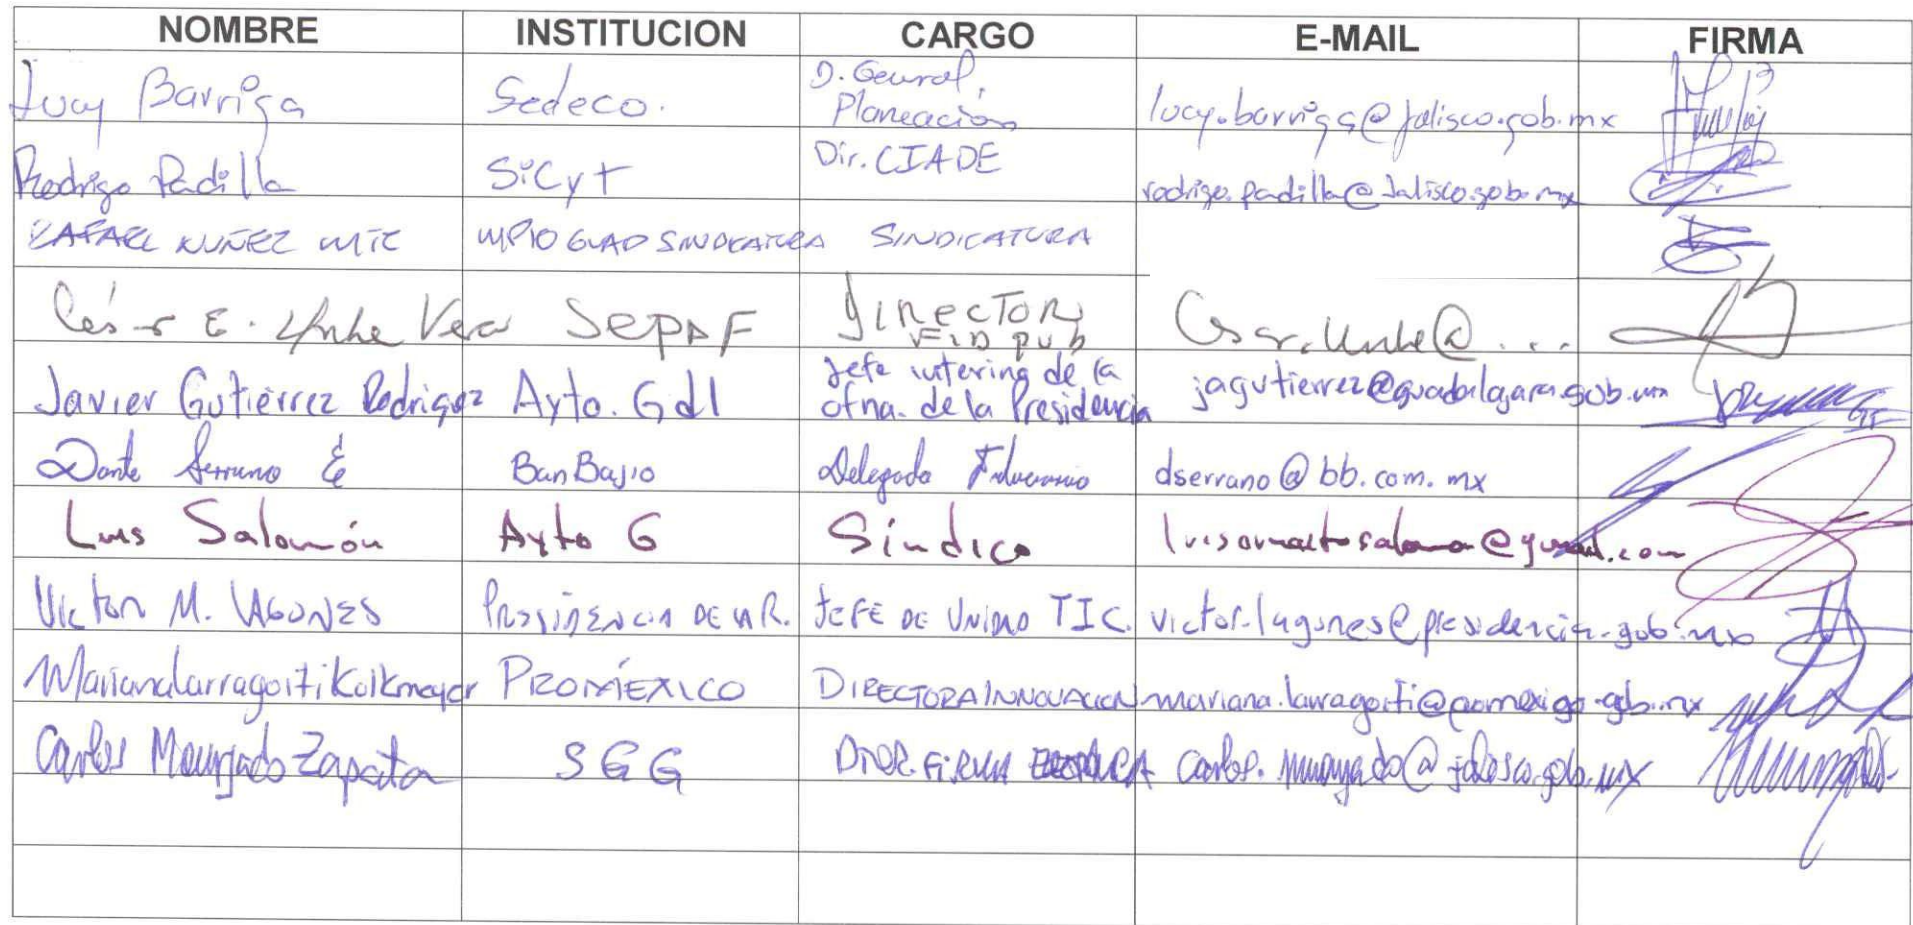 NOMBRE INSTITUCION CARGO E-MAIL FIRMA
Lucy Barriga Sedeco. D. General, Planeación lucy.barriga@jalisco.gob.mx
Rodrigo Padilla SiCyT Dir. CIADE rodrigo.padilla@jalisco.gob.mx
RAFAEL NUÑEZ MPIO GUAD SINDICATURA SINDICATURA
César E. Vera SEPAF DIRECTOR FID PUB @...
Javier Gutiérrez Rodriguez Ayto. Gdl Jefe interino de la ofna. de la Presidencia jagutierrez@guadalajara.gob.mx
Dante Serrano E BanBajio Delegado Fiduciario dserrano@bb.com.mx
Luis Salomón Ayto G Síndico
Victor M. LAGUNES PRESIDENCIA DE LA R. JEFE DE UNIDAD TIC. victor.lagunes@presidencia.gob.mx
Mariana Larragoiti Kolkmeyer PROMÉXICO DIRECTORA INNOVACION mariana.larragoiti@promexico.gob.mx
Carlos Zapata SGG FIRMA